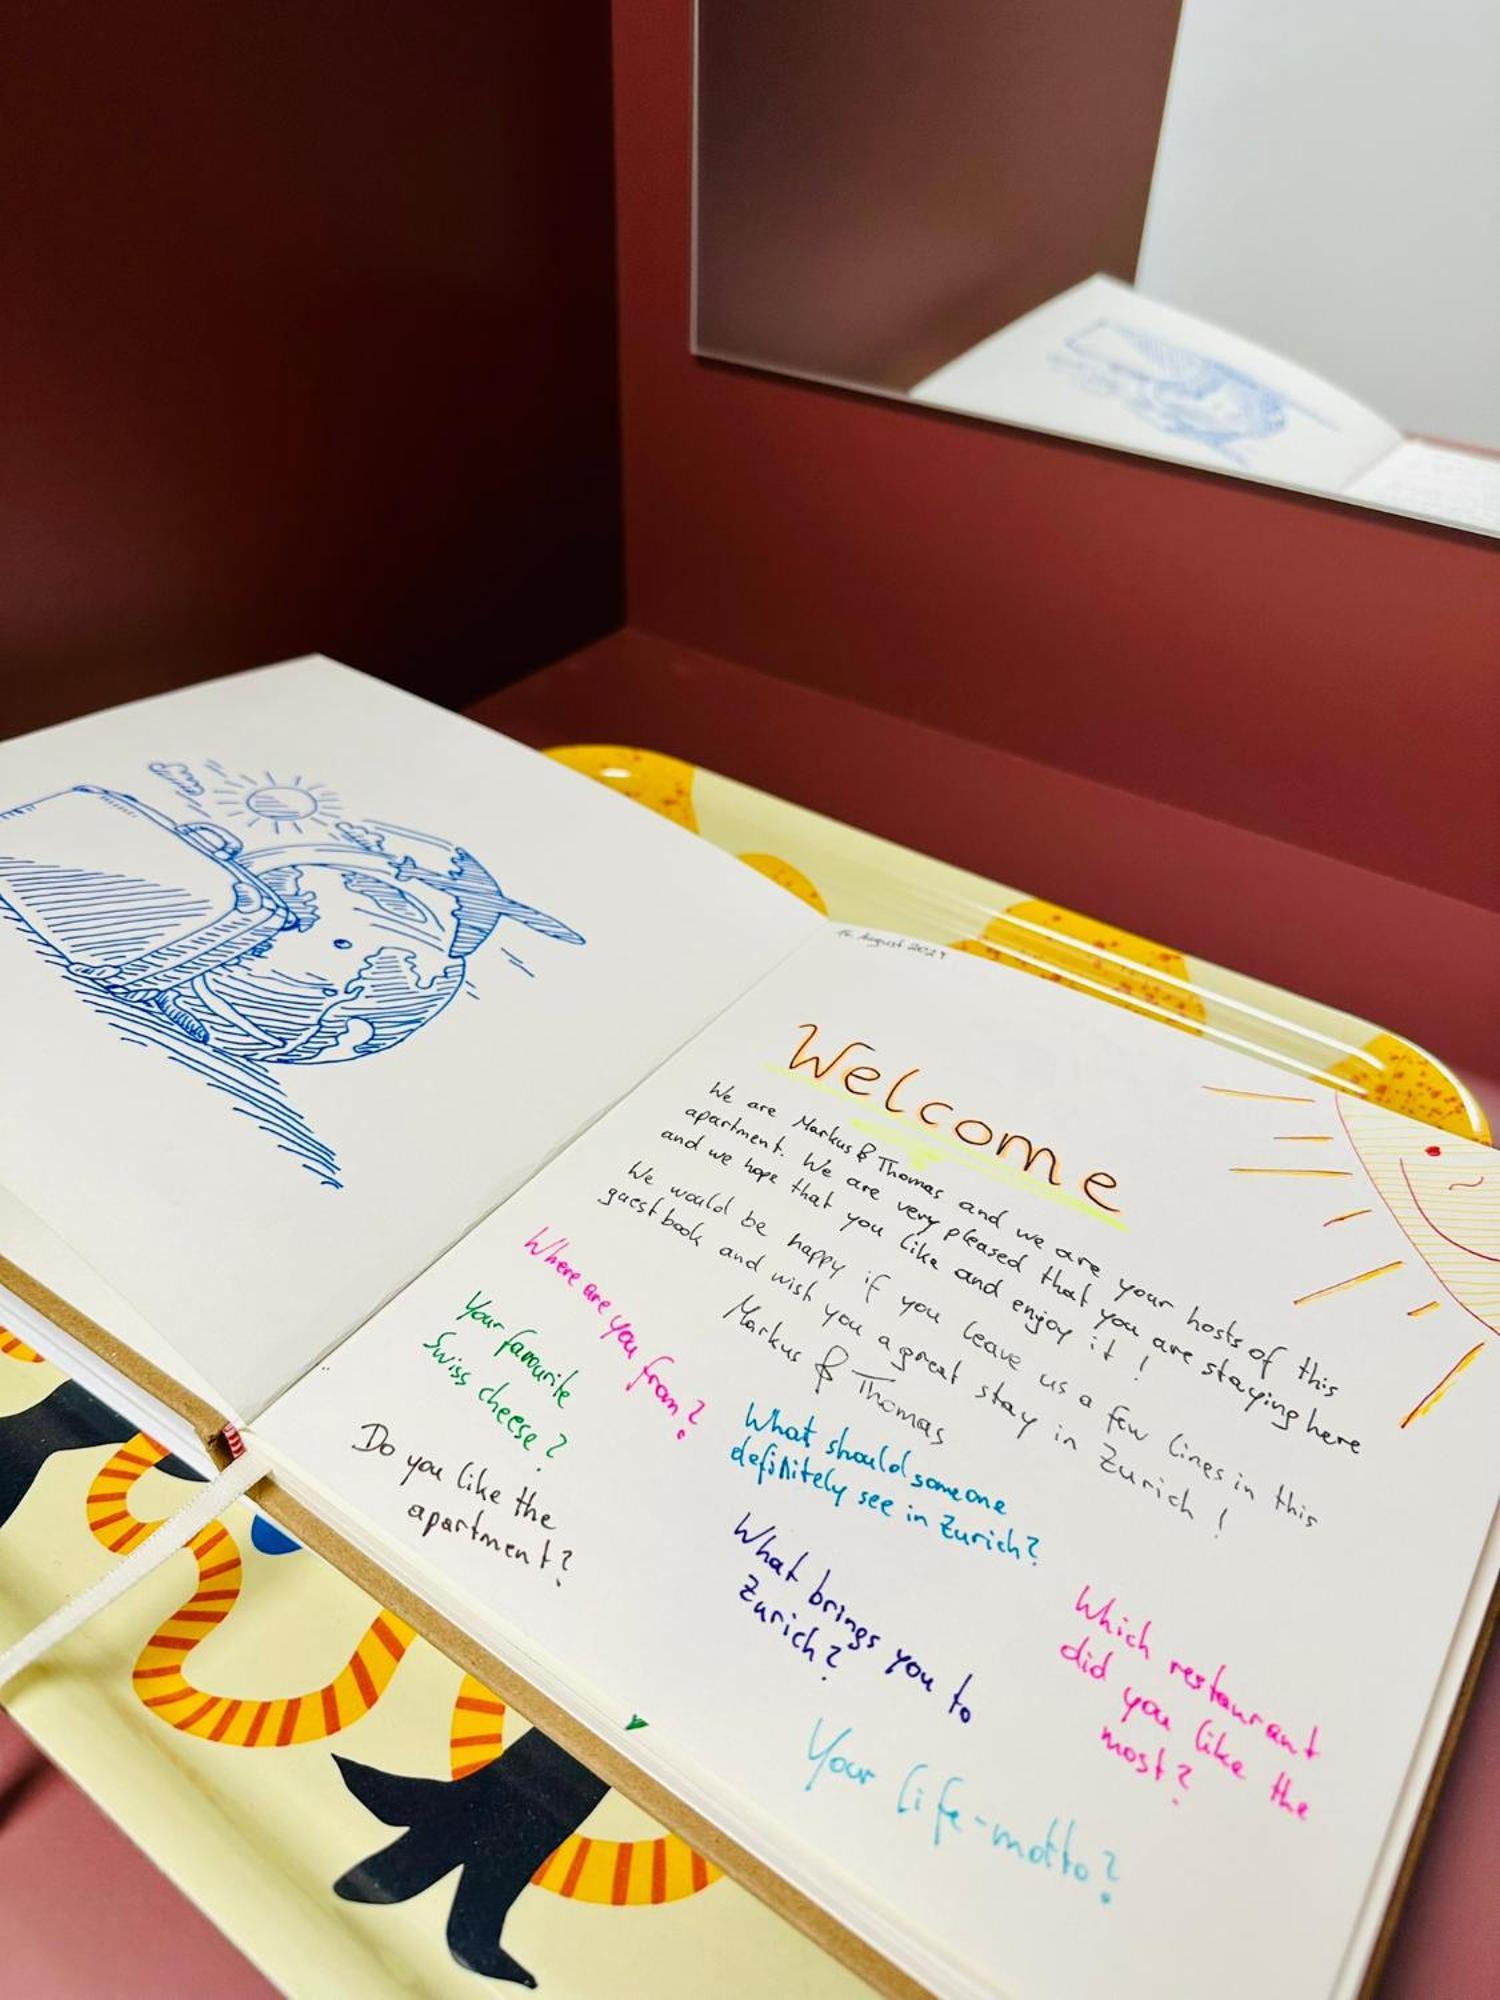 August 2024
Welcome
We are Markus & Thomas and we are your hosts of this
apartment. We are very pleased that you are staying here
and we hope that you like and enjoy it!
We would be happy if you leave us a few lines in this
guestbook and wish you a great stay in Zurich!
Markus & Thomas
Where are you from?
Your favourite
Swiss cheese?
Do you like the
apartment?
What should someone
definitely see in Zurich?
What brings you to
Zurich?
Which restaurant
did you like the
most?
Your life-motto?